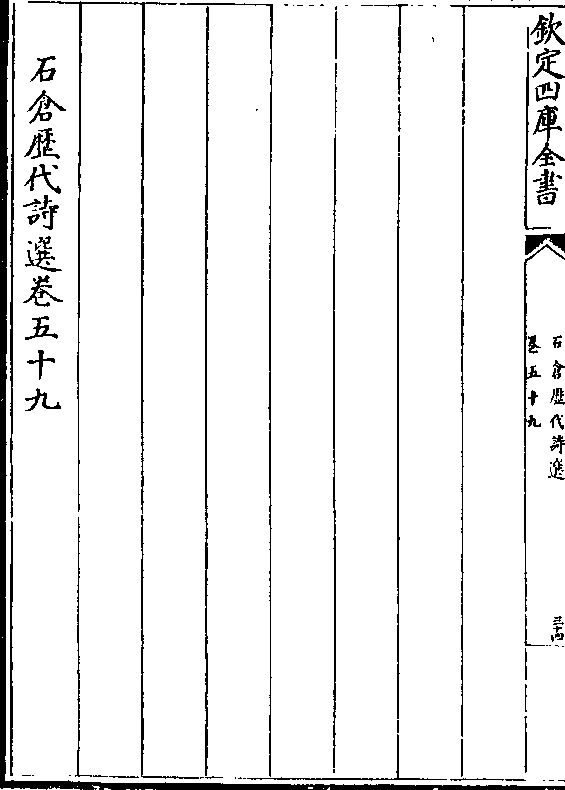 欽定四庫全書
石倉歴代詩選
卷五十九
三十四
石倉歴代詩選卷五十九